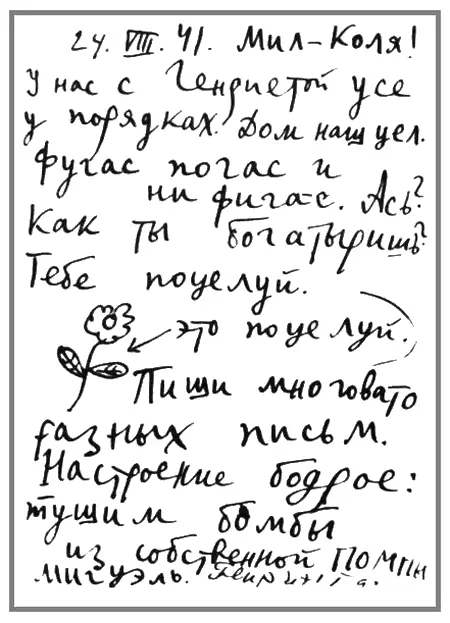 24. VIII. 41. Мил-Коля!
У нас с Генриетой усе
у порядках. Дом наш уел.
Фугас погас и
ни фига-с. Ась?
Как ты богатыришь?
Тебе поуелуй.
это поуелуй.
Пиши многовато
разных письм.
Настроение бодрое:
тушим бомбы
из собственной помпы
Мигуэль. Генриетта.